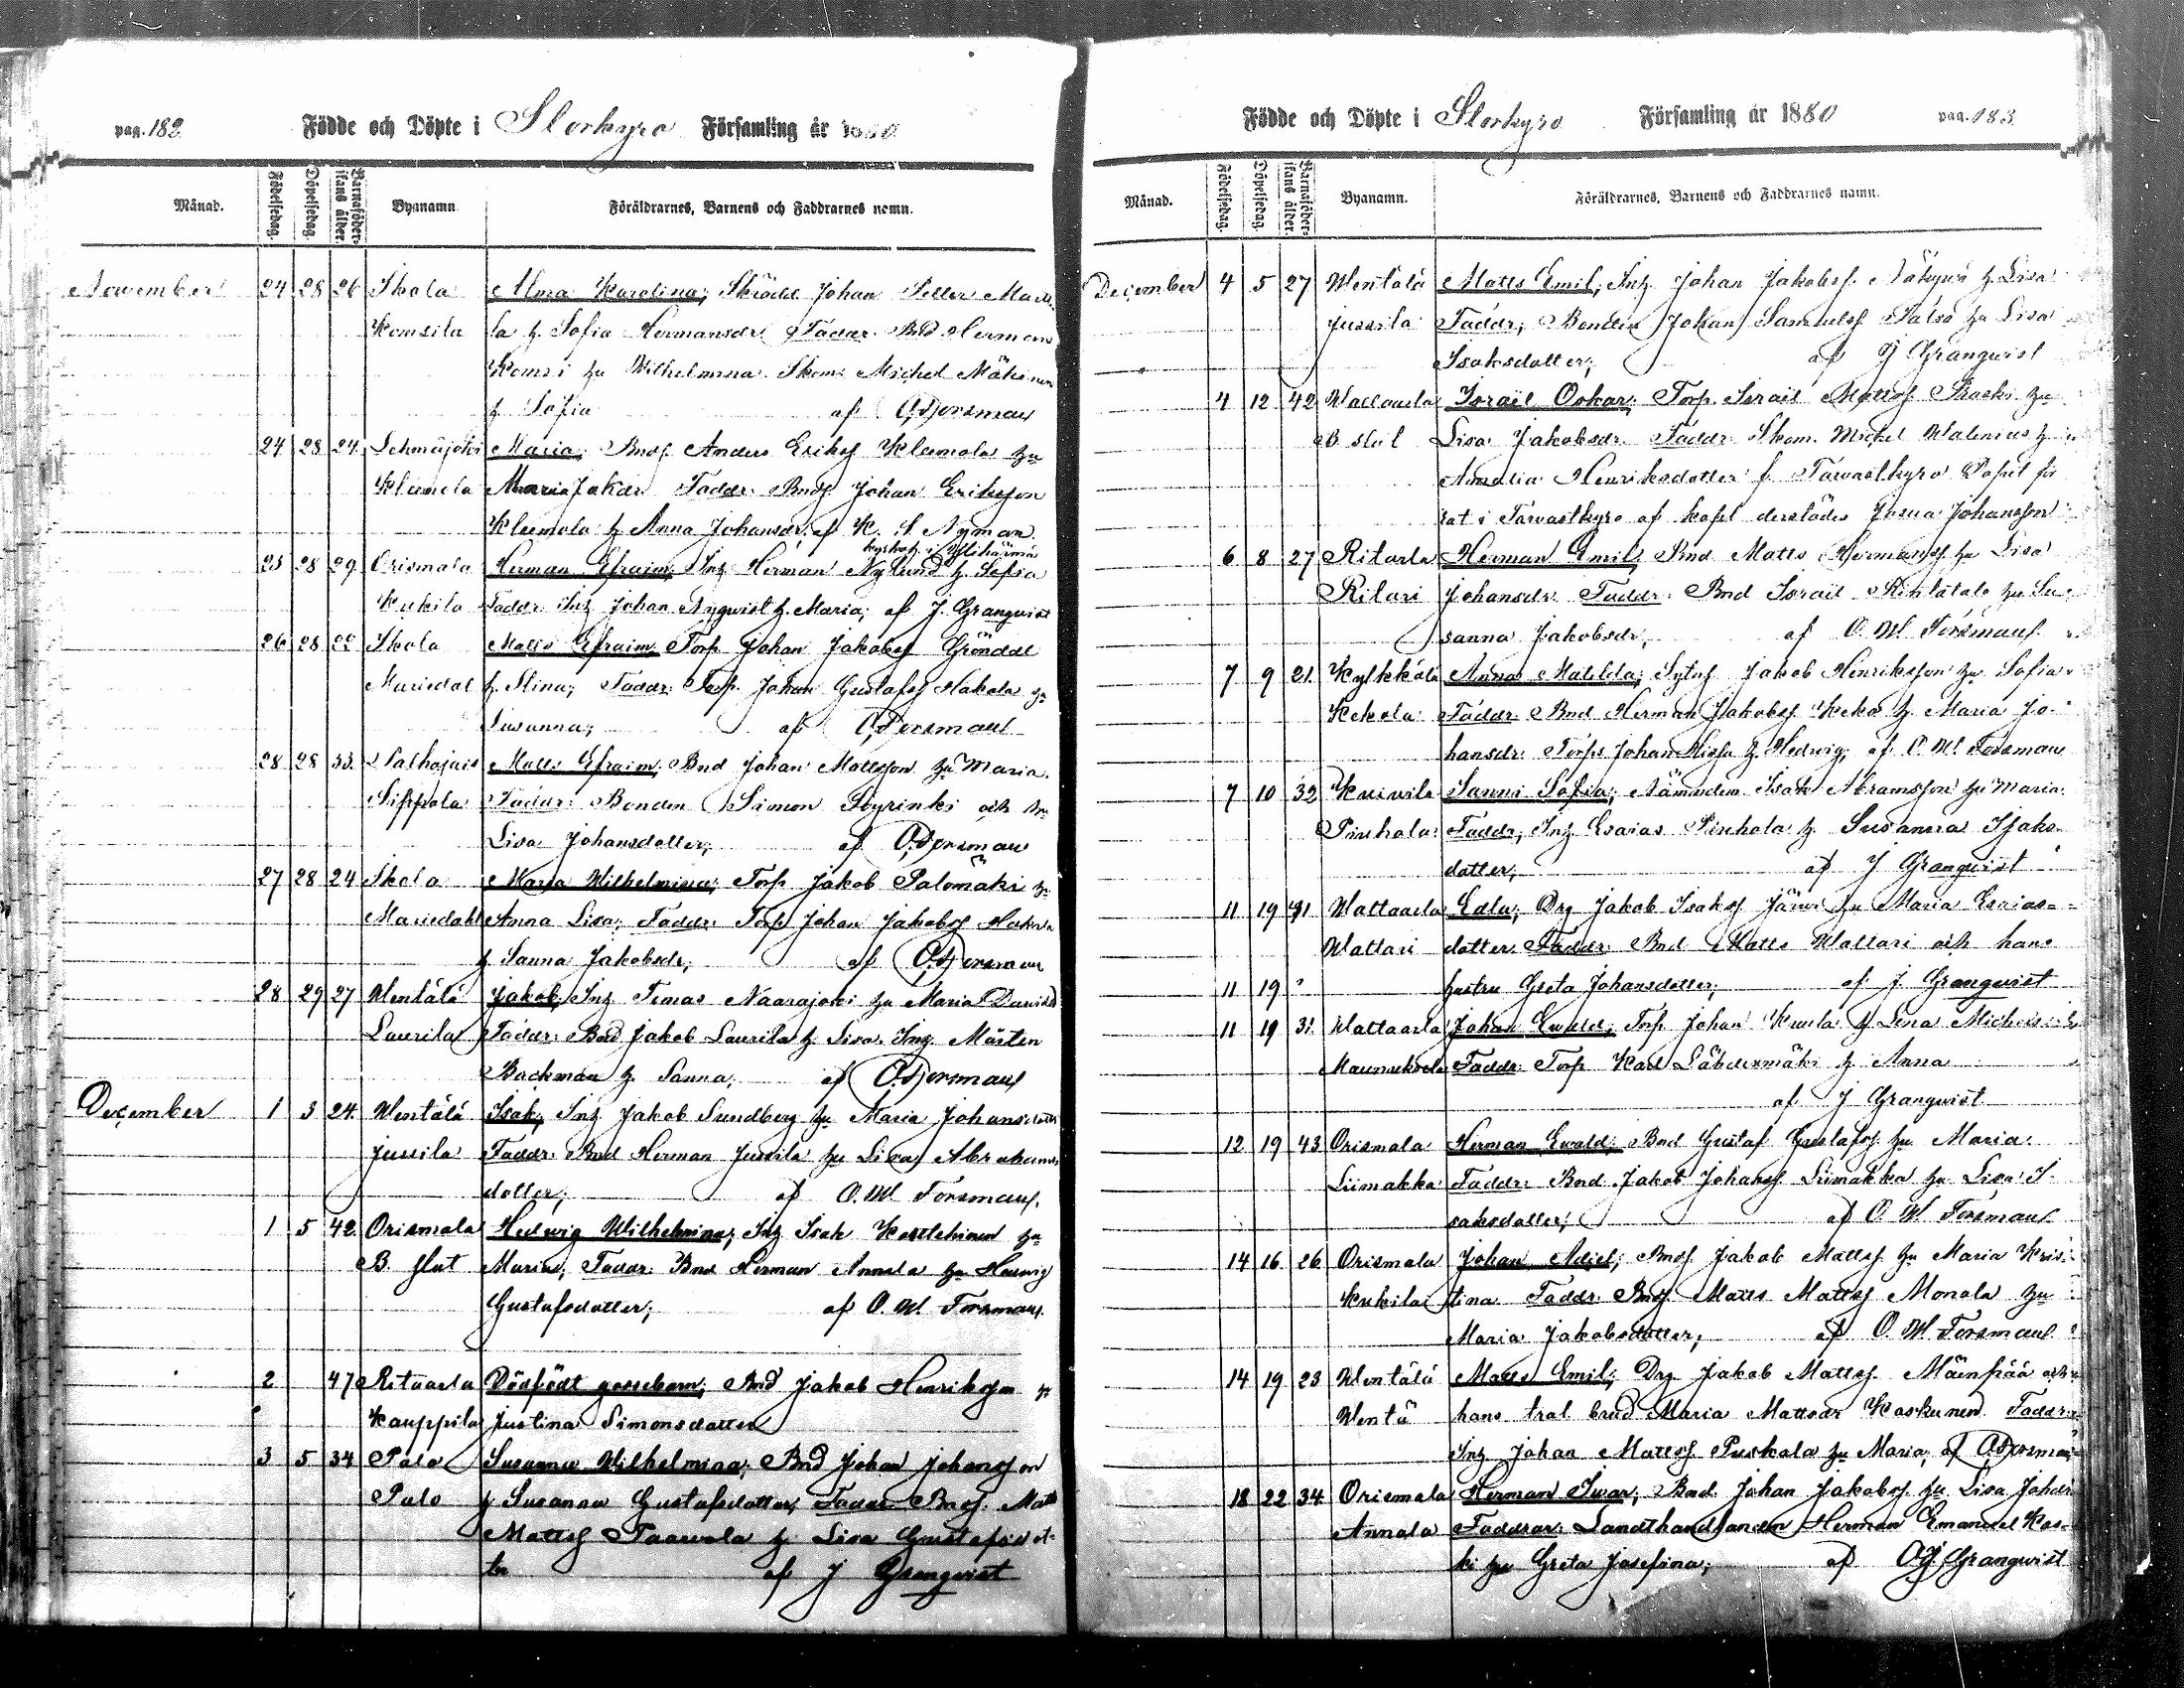 pag. 182.
Födde och Döpte i Storkyro Församling år 1880
Månad. Födelsedag. Döpelsedag. Barnaföderskans ålder. Byanamn Föräldrarnes, Barnens och Faddrarnes namn.
November 24 28 26 Skola Alma Karolina; Johan
Komsila la h. Sofia Hermansdr. Faddr. Bnd Herman
Komsi hu Wilhelmina. Skom. Michel Mäkinen
h. Sofia af Forsman
24 28 24 Lehmäjoki Maria; Bnds. Anders Eriks. Kleemola hu
Kleemola Maria Jakdr. Faddr. Bnds Johan Eriksson
Kleemola h. Anna Johansdr. af K. S. Nyman
kyrkoh. i Ylihärmä
25 28 29 Orismala Herman Efraim; Inh. Herman Nylund h. Sofia
Kukila Faddr. Inh. Johan Nyqvist h. Maria; af J. Granqvist
26 28 22 Skola Matts Efraim; Torp. Johan Jakobss. Gröndal
Mariedal h. Stina; Faddr. Torp. Johan Gustafss. Hakola h.
Susanna; af Forsman
28 28 33 Palhojais Matts Efraim; Bnd Johan Mattsson hu Maria.
Sippola Faddr. Bonden Simon Pyrinki och hu
Lisa Johansdotter; af Forsman
27 28 24 Skola Maria Wilhelmina; Torp. Jakob Palomäki hu
Mariedahl Anna Lisa; Faddr. Torp. Johan Jakobss. Hakola
h. Sanna Jakobsdr; af Forsman
28 29 27 Wentälä Jakob; Inh. Tomas Naarajoki hu Maria Davidsd
Laurila Faddr. Bnd Jakob Laurila h. Lisa. Inh. Mårten
Backman h. Sanna; af Forsman
December 1 3 24 Wentälä Isak; Inh. Jakob Sundberg hu Maria Johansdotter
Jussila Faddr. Bnd Herman Jussila hu Lisa Abrahams
dotter; af O. W. Forsman.
1 5 42 Orismala Hedwig Wilhelmina; Inh Isak hu
B. slut Maria; Faddr. Bnd Herman Annala hu Hedwig
Gustafsdotter; af O. W. Forsman.
2 47 Ritaarla Dödfödt gossebarn; Bnd Jakob Henriksson h.
Kauppila Justina Simonsdotter
3 5 34 Palo Susanna Wilhelmina; Bnd Johan Johansson
Palo h Susanna Gustafsdotter; Faddr. Bnds. Matts
Mattss Taarvola h. Lisa Gustafsdot
ter af J Granqvist
Födde och Döpte i Storkyro Församling år 1880
pag. 183.
Månad. Födelsedag. Döpelsedag. Barnaföderskans ålder. Byanamn. Föräldrarnes, Barnens och Faddrarnes namn.
December 4 5 27 Wentälä Matts Emil; Inh. Johan Jakobss. Näkyvä h. Lisa
Jussila Faddr; Bonden Johan Samuelss. hu Lisa
Isaksdotter; af J Granqvist
4 12 42 Wallaarla Israil Oskar; Torp. Israil Mattss. hu
B. slut Lisa Jakobsdr. Faddr. Skom. Michel Walenius h.
Amalia Henriksdotter f. Tavastkyro Döpt för
rat i Tavastkyro af kapl. derstädes Josua Johansson
6 8 27 Ritarla Herman Emil; Bnd Matts Hermanss. hu Lisa
Ritari Johansdr. Faddr. Bnd Israil Rintatalo hu Su
sanna Jakobsdr; af O. W. Forsman.
7 9 21 Kylkkälä Anna Matilda; Jakob Henriksson hu Sofia
Kekola Faddr. Bnd Herman Jakobss. Keko h. Maria Jo
hansdr. Torps Johan h. Hedwig; af O. W. Forsman
7 10 32 Kuivila Sanni Sofia; Nämndem Isak Abramsson hu Maria.
Pinhola Faddr; Inh Esaias Pinhola h. Susanna Isaks
dotter; af J Granqvist
11 19 31 Wallaarla Edla; Drg Jakob Isakss Järvi hu Maria Esaias
Wallari dotter Faddr. Bnd Matts Wallari och hans
11 19 " hustru Greta Johansdotter; af J. Granqvist
11 19 31 Wallaarla Johan Ewald; Torp. Johan h. Lena Michels
Maunuksela Faddr. Torp Karl Lähdesmäki h. Anna
af J Granqvist
12 19 43 Orismala Herman Ewald; Bnd Gustaf Gustafss. hu Maria.
Liimakka Faddr. Bnd. Jakob Johanss Liimakka hu Lisa I
saksdotter; af O. W. Forsman.
14 16 26 Orismala Johan Adiel; Bnds. Jakob Mattss. hu Maria Kris
Kukila tina Faddr. Bnds. Matts Mattss Monola hu
Maria Jakobsdotter; af O. W. Forsman
14 19 23 Wentälä Matts Emil; Drg Jakob Mattss. Mäenpää och
Wentä hans brud Maria Mattsdr Koskunen Faddr.
Inh Johan Mattss. Puskala hu Maria; af Forsman
18 22 34 Orismala Herman Iwar; Bnd Johan Jakobss. hu Lisa Johdr
Annala Faddrar: Landthandlanden Herman Emanuel Kos
ki hu Greta Josefina; af J Granqvist